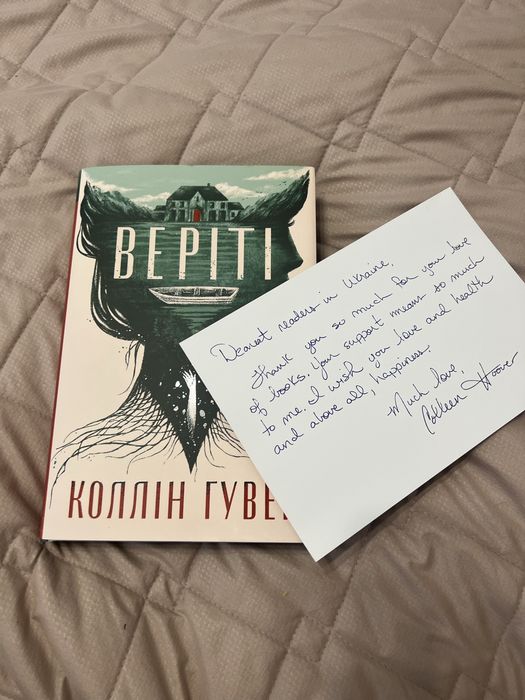 ВЕРІТІ
КОЛЛІН ГУВЕ
Dearest readers in Ukraine,
Thank you so much for your love
of books. Your support means so much
to me. I wish you love and health
and above all, happiness!
Much love,
Colleen Hoover